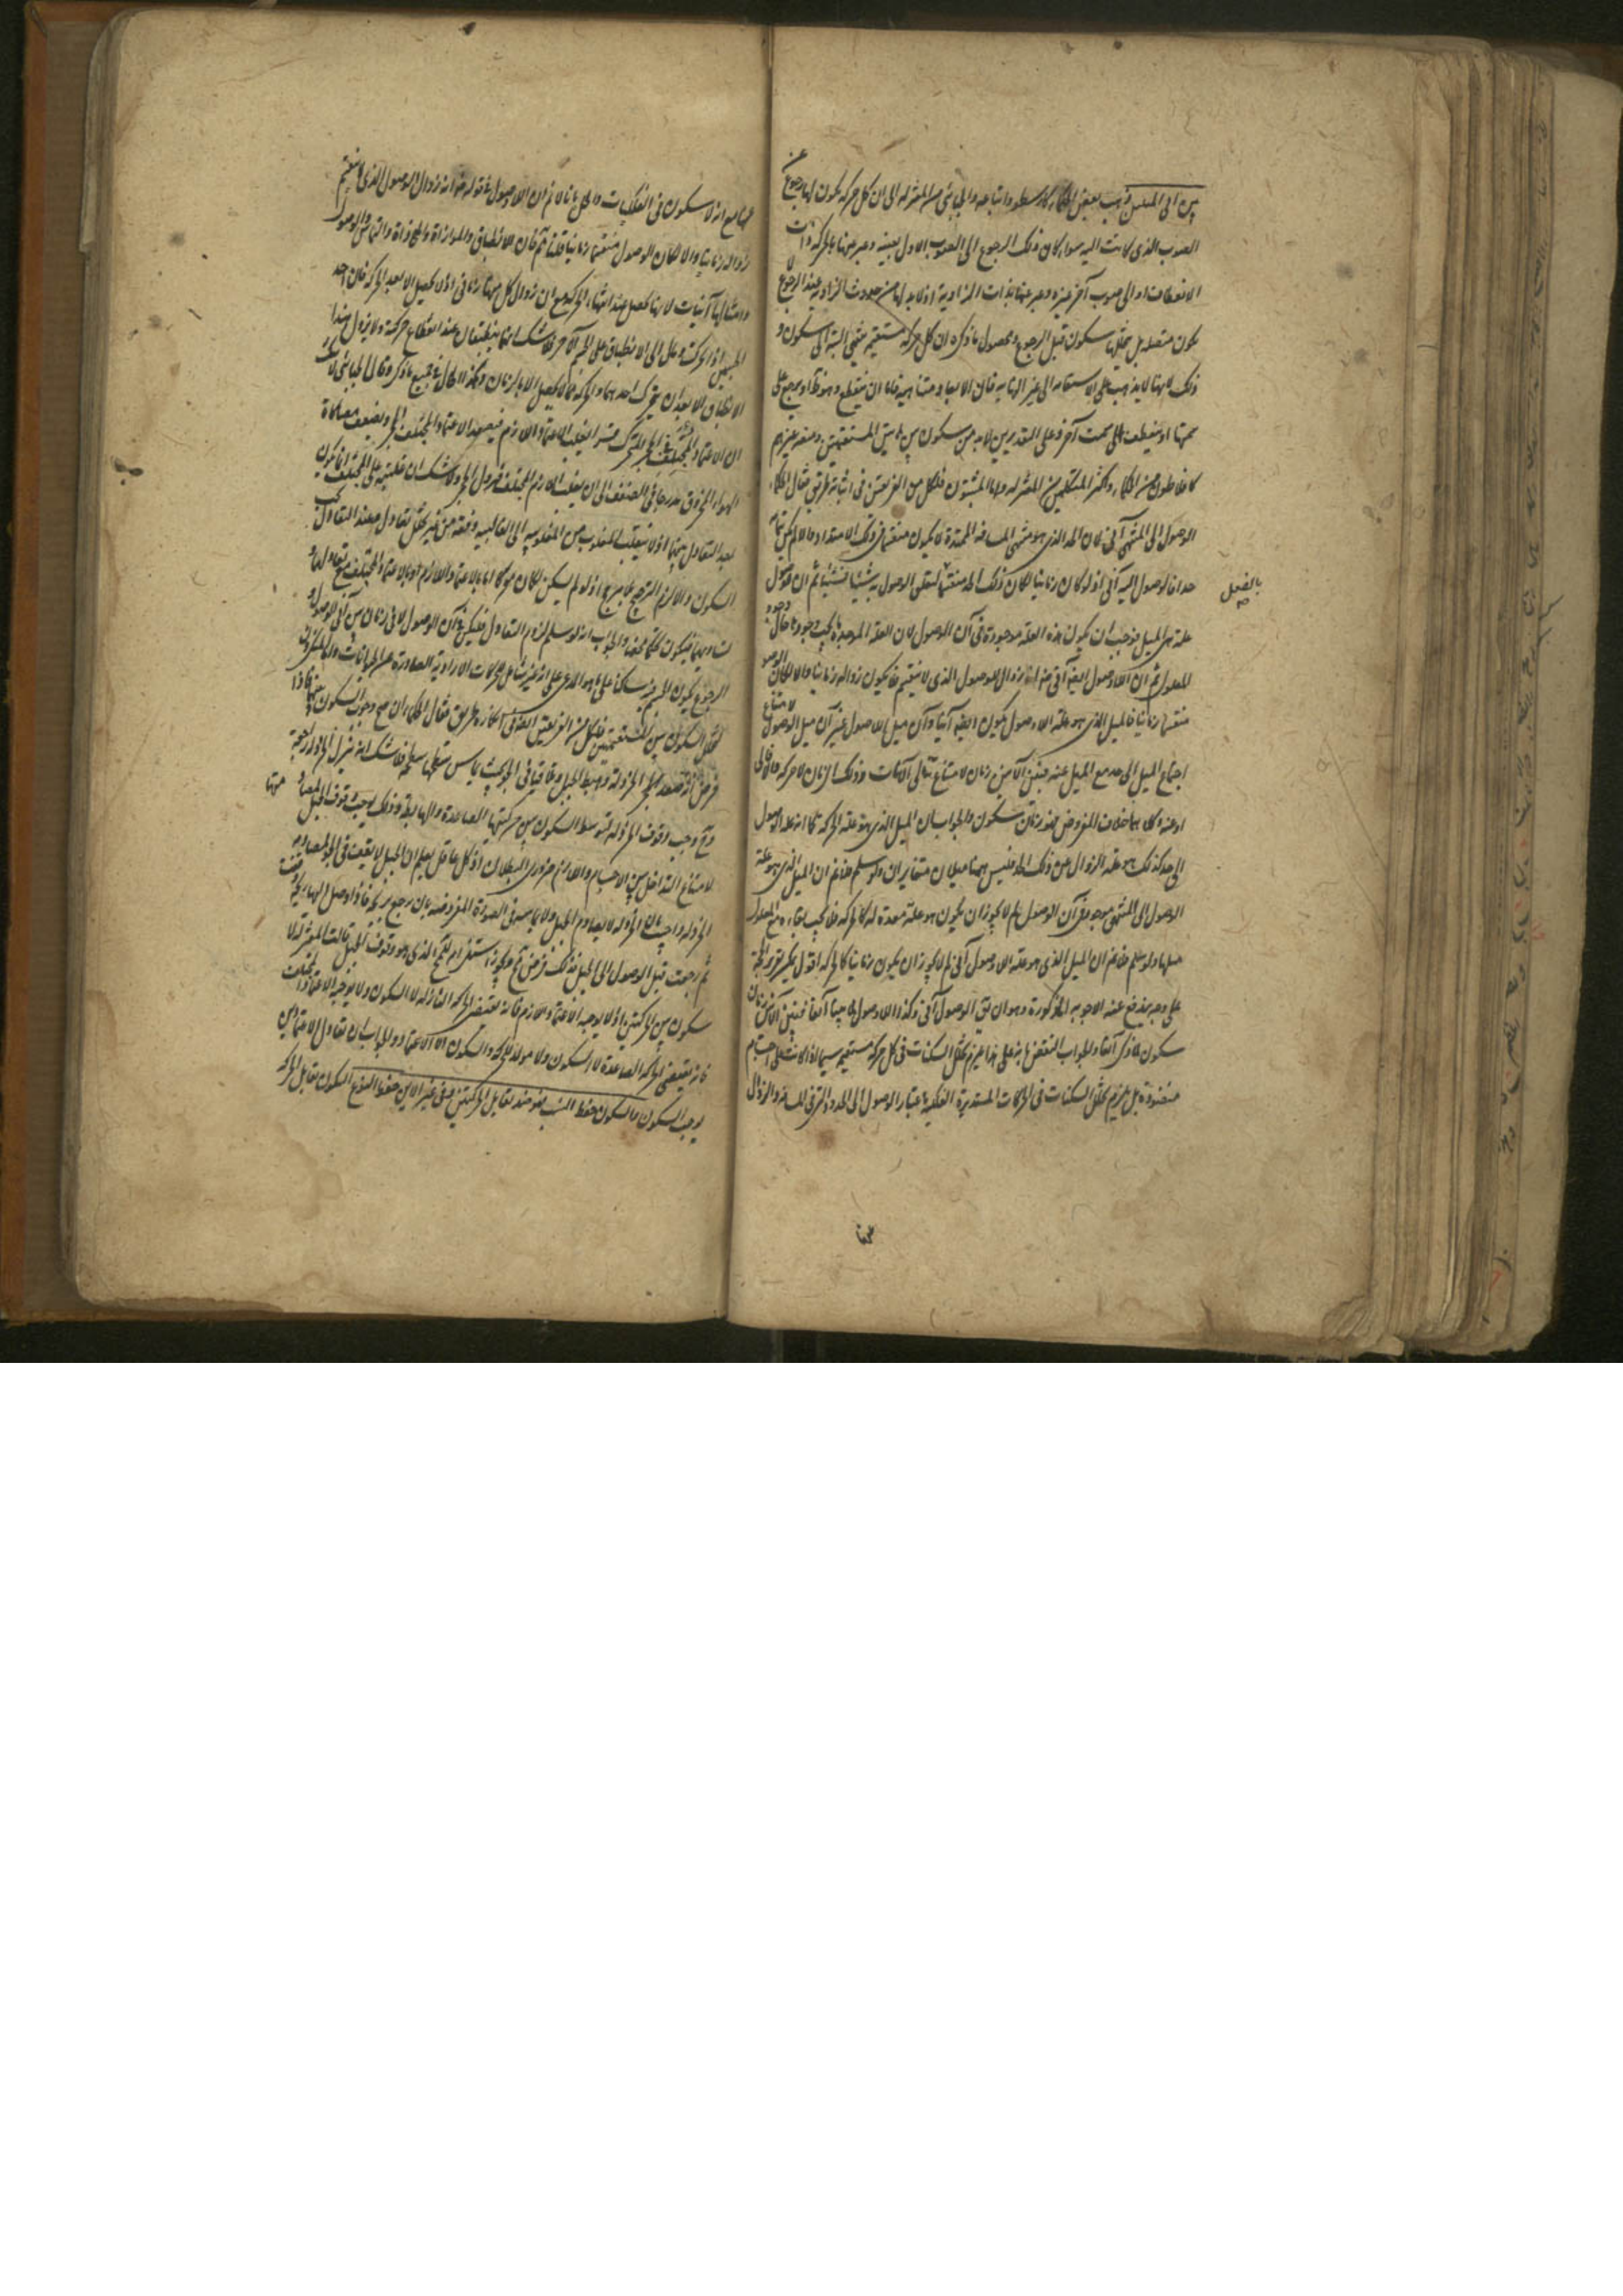 بين آنى الميلين ذهب بعض الحكماء كارسطو واتباعه والجبائى من المعتزلة الى ان كل حركة يكون لها رجوع عن
الصوب الذى كانت اليه سواء كان ذلك الرجوع الى الصوب الاول بعينه وعبر عنها بالحركة ذات
الانعطاف او الى صوب آخر غيره وعبر عنها بذات الزاوية اذ لابد لها من حدوث الزاوية عند الرجوع لا
يكون متصلة بل يتخللها سكون قبل الرجوع ومحصول ما ذكره ان كل حركة مستقيمة منتهى البتة الى سكون و
ذلك لانها لا يذهب على الاستقامة الى غير النهاية فان الابعاد متناهية فاما ان ينقطع وهو ظ او يرجع على
سمتها او ينعطف الى سمت آخر وعلى التقديرين لابد من سكون بين هاتين المستقيمتين ومنعه غيرهم
كافلاطون من الحكماء واكثر المتكلمين من المعتزلة واما المثبتون فلكل من الفريقين فى اثباته طريق فقال الحكماء
الوصول الى المنتهى آنى لان الحد الذى هو منتهى المسافة الممتدة لا يكون منقسما فى ذلك الامتداد والا لم يكن بتمامه
حدا فالوصول اليه آنى اذ لو كان زمانيا لكان ذلك الحد منقسما لتعلق الوصول به شيئا فشيئا ثم ان للوصول
بالفعل صح
علة هى الميل فوجب ان يكون هذه العلة موجودة فى آن الوصول لان العلة الموجدة يجب وجودها حال وجود
المعلول ثم ان اللاوصول ايضا آنى ضرورة انه زوال الوصول الذى لا ينقسم فلا يكون زواله زمانيا والا لكان الوصول
منقسما زمانيا فالميل الذى هو علة اللاوصول يكون ايضا آنيا وآن ميل اللاوصول غير آن ميل الوصول لامتناع
اجتماع الميل الى حد مع الميل عنه فبين الآنين زمان لامتناع تتالى الآنات وذلك الزمان لا حركة فيه لا الى
او عنه وكلاهما خلاف المفروض فهو زمان سكون والجواب ان الميل الذى هو علة الحركة كما انه علة الوصول
الى حد كذلك هو علة الزوال عن ذلك الحد فليس ههنا ميلان متغايران ولو سلم فلا نم ان الميل الذى هو علة
الوصول الى المنتهى موجود فى آن الوصول لم لا يجوز ان يكون هو علة معدة له كالحركة فلا يجب بقاءه مع المعلول
سلمنا ولو سلم فلا نم ان الميل الذى هو علة اللاوصول آنى لم لا يجوز ان يكون زمانيا كالحركة اقول يمكن تقرير الحجة
على وجه يندفع عنه الاجوبة المذكورة وهو ان يق الوصول آنى وكذا اللاوصول لما بينا آنفا فبين الآنين زمان
سكون لما ذكر آنفا والجواب النقض بانه على هذا يلزم تخلل السكنات فى كل حركة مستقيمة سيما اذا كانت على اجسام
منضودة بل يلزم تخلل السكنات فى الحركات المستديرة الفلكية باعتبار الوصول الى الحدود التى فى المسافة والزوال
عنها
عنها مع انه لا سكون فى الفلكيات والحل بانا لا نم ان اللاوصول آنى قوله ضرورة انه زوال الوصول الذى لا ينقسم
زواله زمانيا والا لكان الوصول منقسما زمانيا قلنا مم فان الانطباق والموازاة والمحاذاة والتماس والوصول
وامثالها آنيات لانها تحصل عند انتهاء الحركة مع ان زوال كل منها زمانى اذ لا يحصل الا بعد الحركة فان احد
الجسمين اذا تحرك ومال الى الانطباق على الجسم الآخر فلا شك انهما ينطبقان عند انقطاع حركته ولا يزول هذا
الانطباق الا بعد ان يتحرك احدهما والحركة مما لا يحصل الا بالزمان وهكذا الحال فى جميع ما ذكر وقال الجبائى لا شك
ان الاعتماد المجتلب فى الحجر المتحرك قسرا يغلب الاعتماد اللازم فيصعد الاعتماد المجتلب الحجر ويضعف بمصاكة
الهواء المخروق متدرجا فى الضعف الى ان يغلب اللازم المجتلب فينزل الحجر ولا شك ان غلبته على المجتلب انما يكون
بعد التعادل بينهما اذ لا ينقلب المغلوب من المغلوبية الى الغالبية دفعة من غير تخلل تعادل فعند التعادل يجب
السكون والا لزم الترجيح بلا مرجح اذ لو لم يسكن لكان متحركا اما بالاعتماد اللازم او بالاعتماد المجتلب مع تعادلهما و
تساويهما فيكون تحكما محضا والجواب انه لو سلم لزوم التعادل فليكن فى آن الوصول لا فى زمان بين آنى الوصول و
الرجوع يكون الحجر فيه ساكنا على ما هو المدعى على انه غير شامل للحركات الارادية الصادرة عن الحيوانات واما المنكرون
لتخلل السكون بين المستقيمتين فلكل من الفريقين ايضا فى انكاره طريق فقال الحكماء ان صح وجوب السكون بينهما فاذا
فرض انه تصعد الخردلة ويهبط الجبل وتلاقيا فى الجو بحيث يماس سطحها سطحه فلا شك انه ينزل الخردلة راجعة
وح وجب وقوف الخردلة لتوسط السكون بين حركتيها الصاعدة والهابطة وذلك يوجب وقوف الجبل المصادم
منها
لامتناع التداخل بين الاجسام واللازم ضرورى البطلان اذ كل عاقل يعلم ان الجبل لا يقف فى الجو لمصادمة
الخردلة واجيب بان الخردلة لا يصادم الجبل ولا يماسه فى الصورة المفروضة بل يرجع بريحه فاذا وصل اليها ريحه وقفت
ثم رجعت قبل الوصول الى الجبل فذلك فرض مح ويجوز استلزام المح للمح الذى هو وقوف الجبل وقالت المعتزلة لا
سكون بين الحركتين اذ لا يوجبه الاعتماد اللازم فانه يقتضى الحركة النازلة لا السكون ولا يوجبه الاعتماد المجتلب
فانه يقتضى الحركة الصاعدة لا السكون ولا مولد للحركة والسكون الا الاعتماد والجواب ان تعادل الاعتمادين
يوجب السكون والسكون حفظ النسب فهو ضد يقابل الحركتين وفى غير الاين حفظ النوع السكون يقابل الحركة